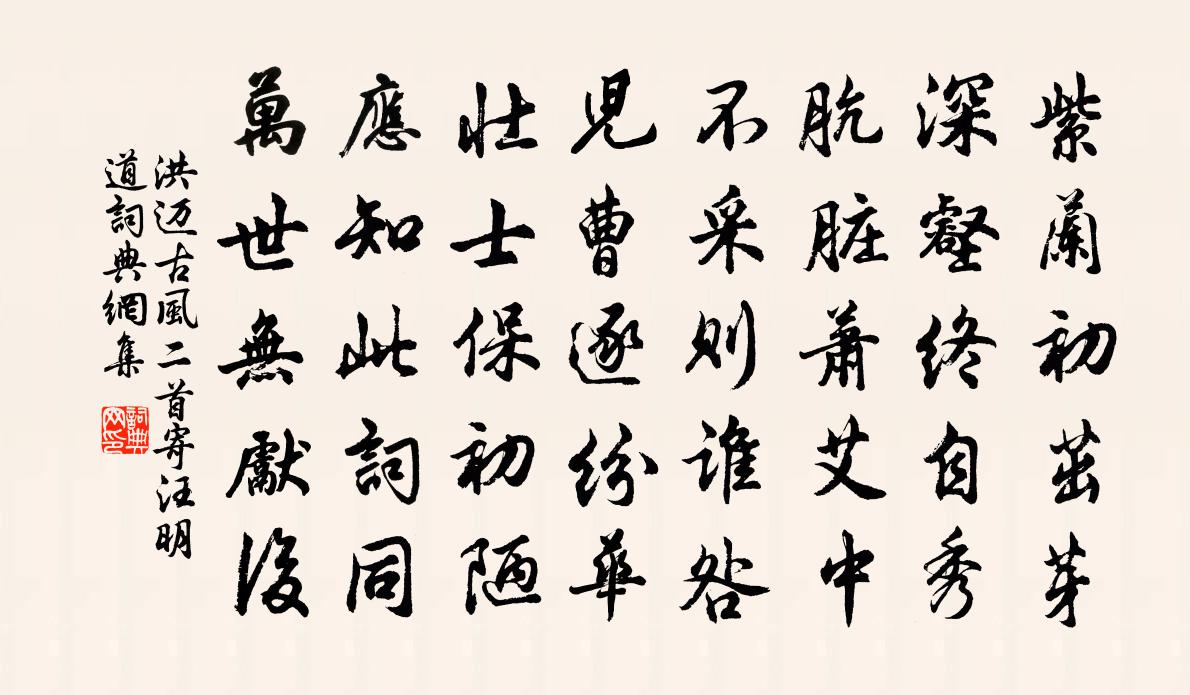 紫蘭初茁芽
深壑終自秀
肮脏蕭艾中
不采則誰咎
兒曹逐紛華
壯士保初陋
應知此詞同
萬世無獻後
洪迈古風二首寄汪明
道詞典網集
詞典网印